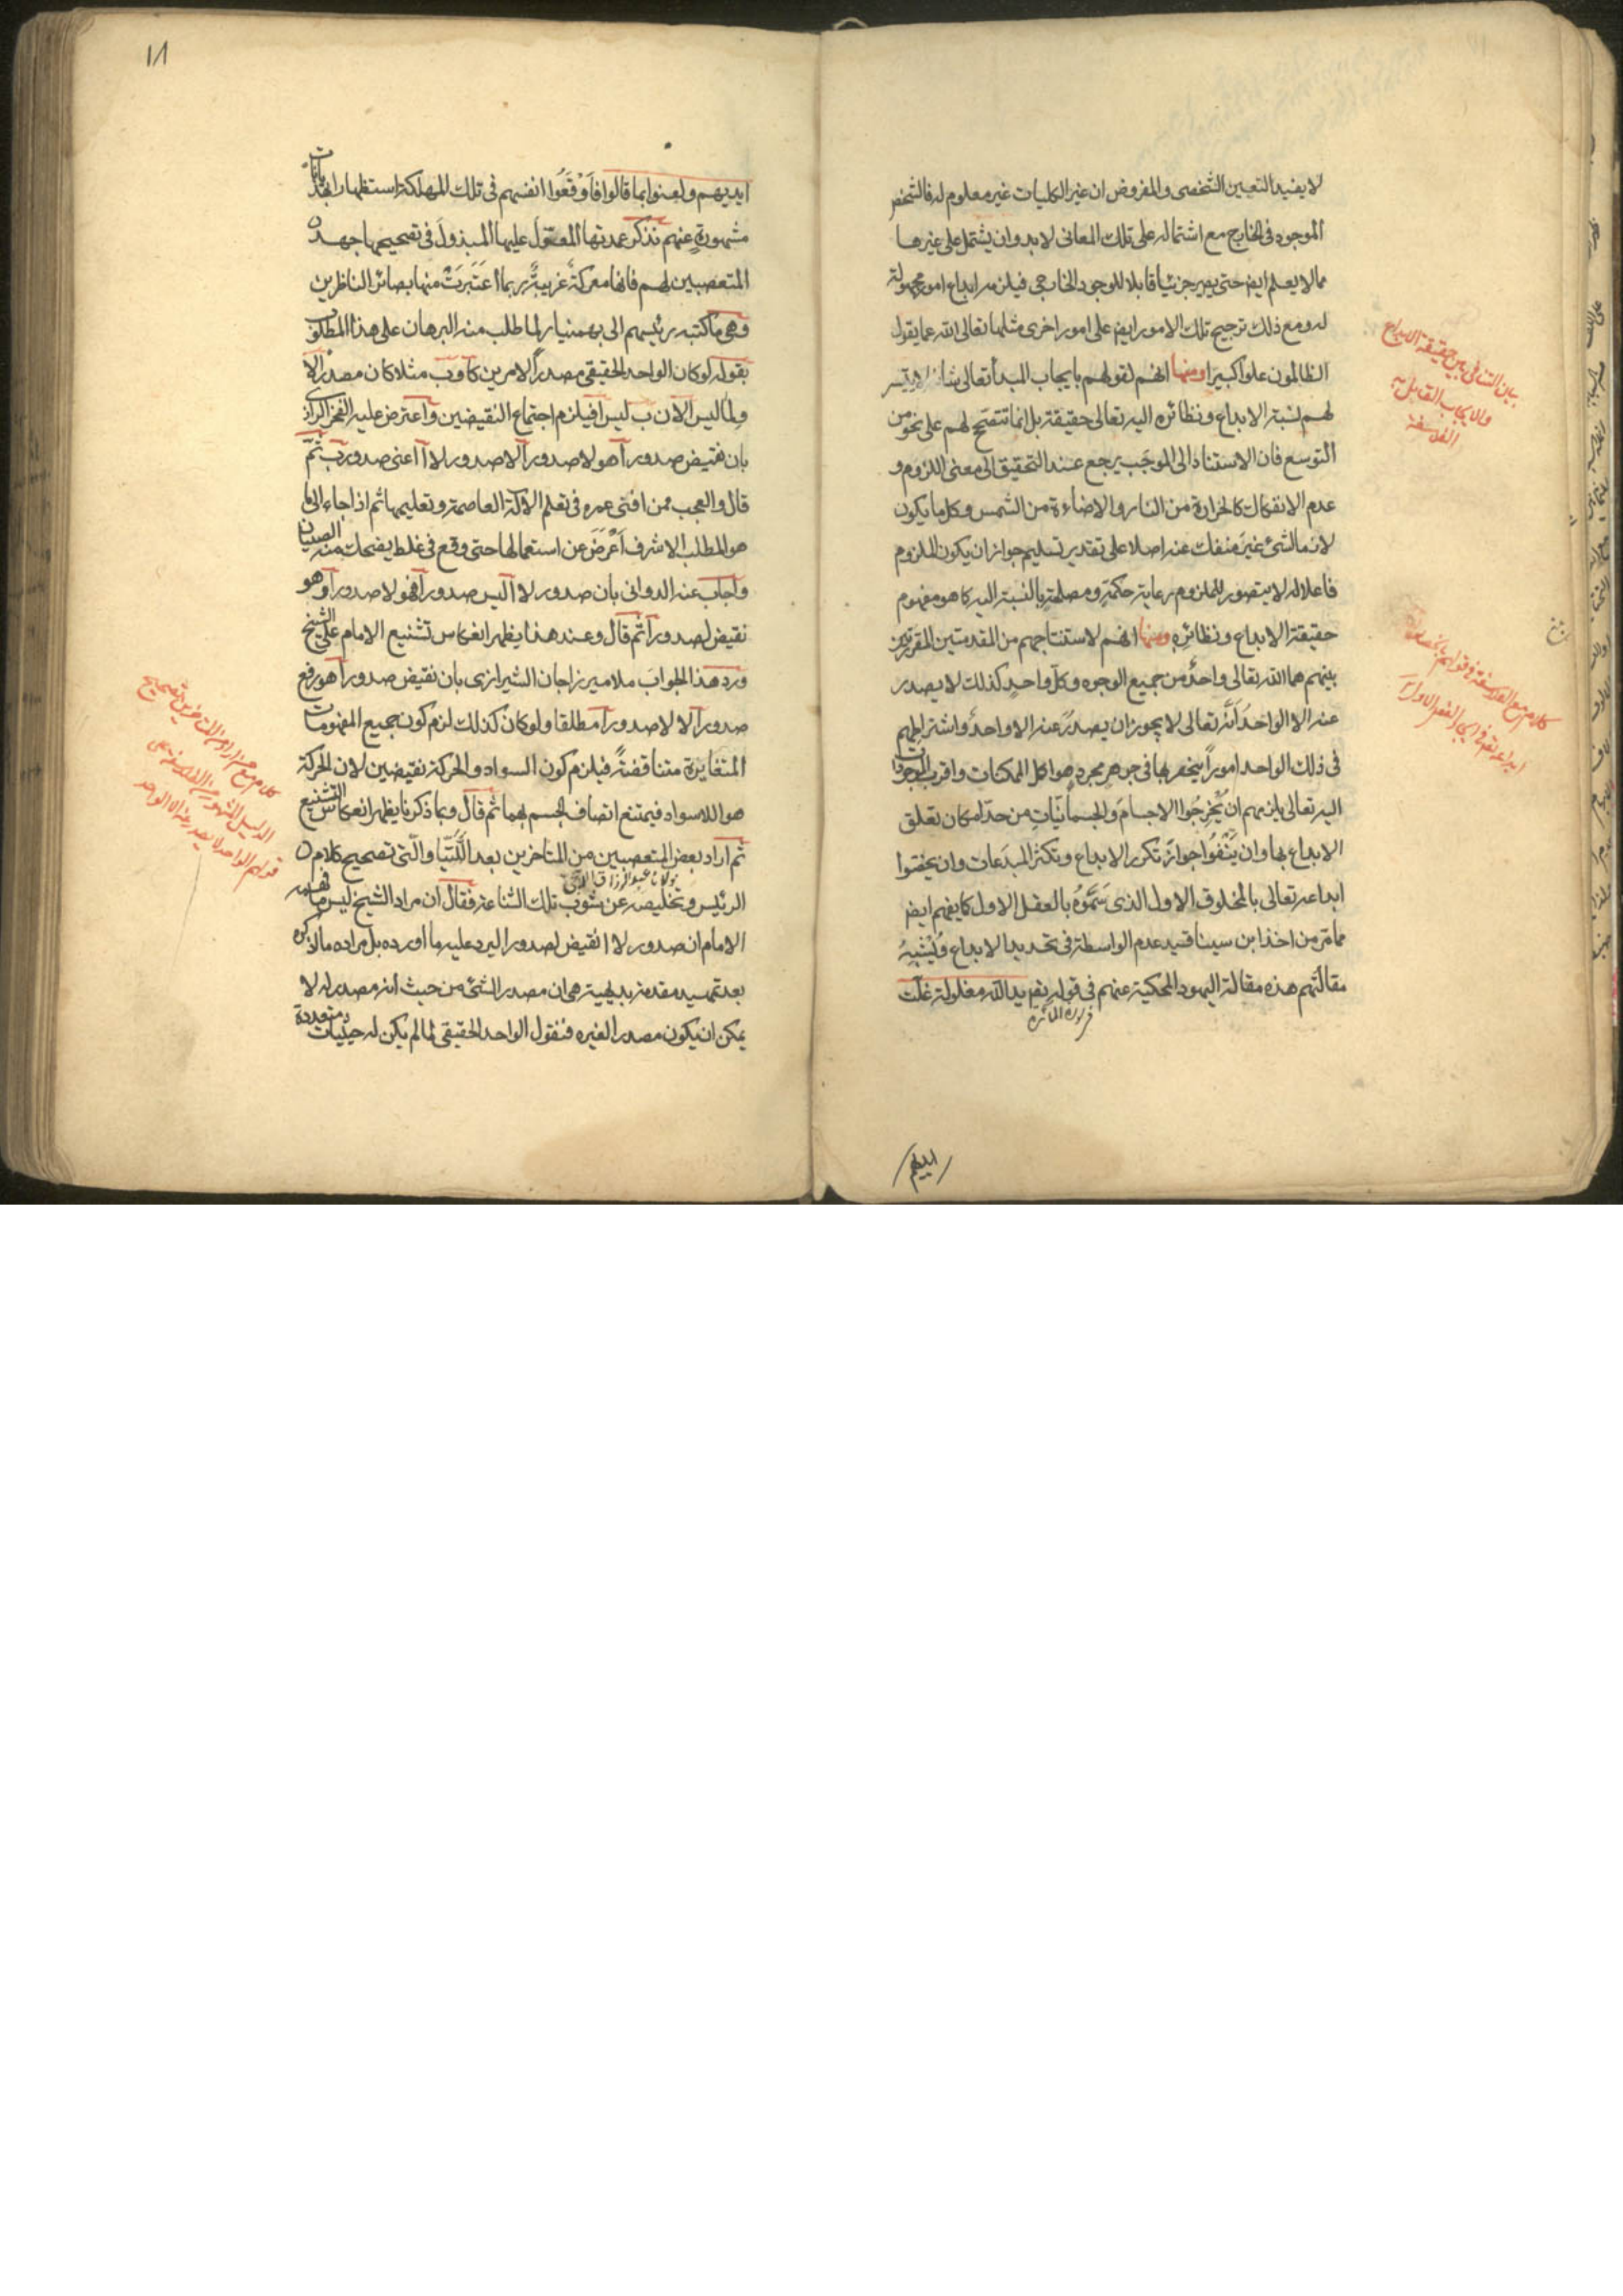 لا يفيد التعيين الشخصى والمفروض ان غير الكليات غير معلوم له فالشخص
الموجود فى الخارج مع اشتماله على تلك المعانى لا بد وان يشتمل على غيرها
مما لا يعلم ايضا حتى يصير جزئيا قابلا للوجود الخارجى فيلزم ابداع امور مجهولة
له ومع ذلك ترجيح تلك الامور ايضا على امور اخرى مثلها تعالى الله عما يقول
الظالمون علوا كبيرا ومنها انهم لقولهم بايجاب المبدأ تعالى شانه لا يتيسر
لهم نسبة الابداع ونظائره اليه تعالى حقيقة بل انما تتضح لهم على نحو من
التوسع فان الاستناد الى الموجَب يرجع عند التحقيق الى معنى اللزوم و
عدم الانفكاك كالحرارة من النار والاضاءة من الشمس وكل ما يكون
لازما لشئ غير منفك عنه اصلا على تقدير تسليم جواز ان يكون الملزوم
فاعلا له لا يتصور للملزوم رعاية حكمةٍ ومصلحةٍ بالنسبة اليه كما هو مفهوم
حقيقة الابداع ونظائره ومنها انهم لاستنتاجهم من المقدمتين المقررتين
بينهم هما الله تعالى واحدٌ من جميع الوجوه وكل واحدٍ كذلك لا يصدر
عنه الا الواحدُ أنّه تعالى لا يجوز ان يصدرَ عنه الا واحدٌ واشتراطهم
فى ذلك الواحد اموراً ينحصر بها فى جوهر مجرد هو اكمل الممكنات واقرب الموجودات
اليه تعالى يلزمهم ان يُخْرِجُوا الاجسامَ والجسمانيّاتِ من حد امكان تعلق
الابداع بها وان يَنْفُوا جوازَ تكرر الابداع وتكثر المبدَعات وان يخصّوا
ابداعه تعالى بالمخلوق الاول الذى سَمَّوْهُ بالعقل الاول كما يفهم ايضا
مما مرّ من اخذ ابن سينا قيد عدم الواسطة فى تحديد الابداع وَيُشْبِهُ
مقالتهم هذه مقالة اليهود المحكية عنهم فى قوله يد الله مغلولة غلت
سورة المائدة
ايديهم
بيان التنافى بين حقيقة الابداع
والايجاب القائل به
الفلاسفة
كلام مع الفلاسفة فى قولهم
١٨
ايديهم ولعنوا بما قالوا فَأَوْقَعُوا انفسهم فى تلك المهلكة استظهارا بخيالات
مشهورةٍ عنهم نذكر عمدتها المعوّل عليها المبذولَ فى تصحيحها جهد
المتعصبين لهم فانها معركة غريبةٌ ربما اعتَبَرَتْ منها بصائر الناظرين
وهى ما كتبه رئيسهم الى بهمنيار لما طلب منه البرهان على هذا المطلوب
بقوله لو كان الواحد الحقيقى مصدراً لامرين كآ وب مثلا كان مصدرا لآ
ولما ليس آ لان ب ليس آ فيلزم اجتماع النقيضين واعترض عليه الفخر الرازى
بان نقيض صدور آ هو لا صدور آ لا صدور لا آ اعنى صدور ب ثم
قال والعجب ممن افنى عمره فى تعلم الآلة العاصمة وتعليمها ثم اذا جاء الى ما
هو المطلب الاشرف أَعْرَضَ عن استعمالها حتى وقع فى غلط يضحك منه الصبيان
واجاب عنه الدوانى بان صدور لا آ ليس صدور آ فهو لا صدور آ وهو
نقيض لصدور آ ثم قال وعند هذا يظهر انعكاس تشنيع الامام على الشيخ
ورد هذا الجوابَ ملا ميرزاجان الشيرازى بان نقيض صدور آ هو رفع
صدور آ لا لا صدور آ مطلقا ولو كان كذلك لزم كون جميع المفهومات
المتغايرة متناقضةً فيلزم كون السواد والحركة نقيضين لان الحركة
هو اللاسواد فيمتنع اتصاف الجسم بهما ثم قال وبما ذكرنا يظهر انعكاس التشنيع
ثم اراد بعض المتعصبين من المتأخرين بعد اللَّتَيّا والّتى تصحيح كلام
مولانا عبد الرزاق اللاهجى
الرئيس وتخليصه عن شوب تلك الشناعة فقال ان مراد الشيخ ليس ما فهمه
الامام ان صدور لا آ نقيض لصدور آ ليرد عليه ما اورده بل مراده ما اذكره
بعد تمهيد مقدمة بديهية هى ان مصدر الشئ من حيث انه مصدر له لا
يمكن ان يكون مصدرا لغيره فنقول الواحد الحقيقى لما لم يكن له حيثيات متعددة
قولهم الواحد لا يصدر عنه الا الواحد